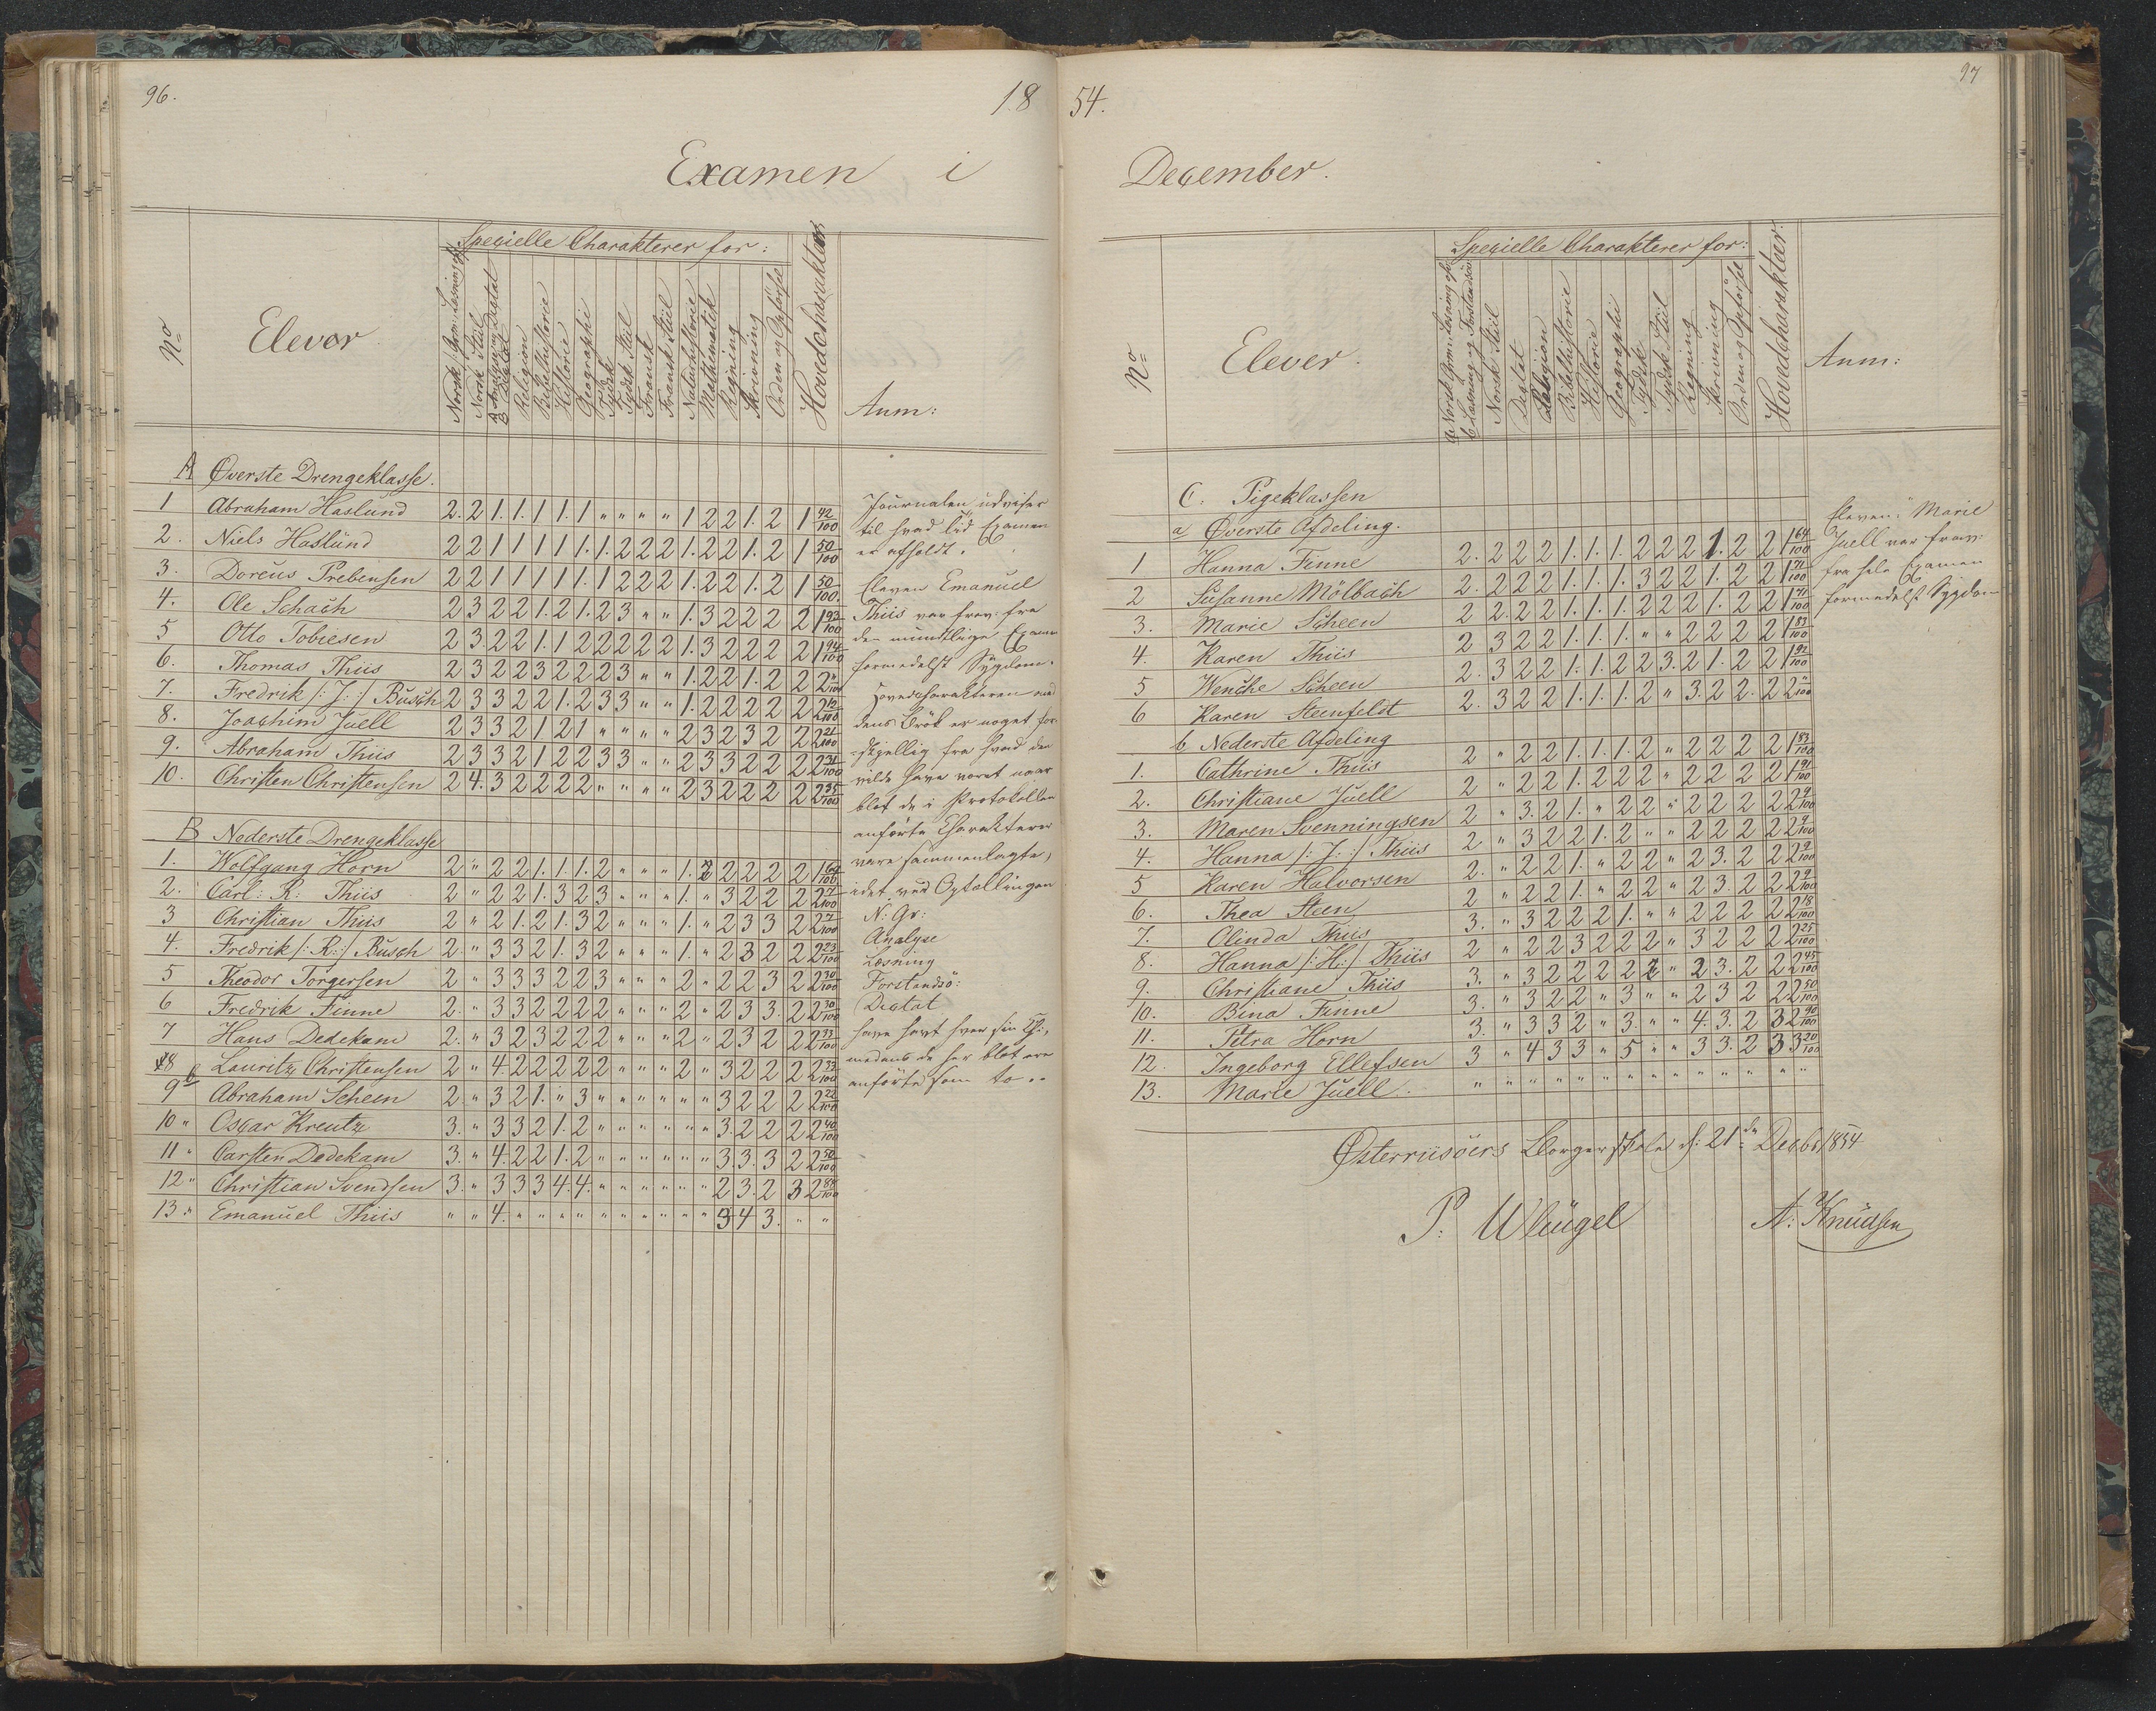 96.
18
Examen i
Specielle Charakterer for:
No
Elever
Norsk Stiil
Religion
Bibelhistorie
Historie
Geographi
Tydsk
Tydsk Stiil
Fransk
Fransk Stiil
Naturhistorie
Mathematik
Regning
Skrivning
Orden og Opförsel
Hovedcharakteer
Anm:
A Øverste Drengeklasse.
1 Abraham Haslund 2. 2 1. 1. 1 1. 1 " " " " 1 2 2 1. 2 1 42/100
2. Niels Haslund 2 2 1 1 1 1 1. 1. 2 2 2 1. 2 2 1. 2 1 50/100
3. Doreus Prebensen 2 2 1 1 1 1 1. 1 2 2 2 1. 2 2 1. 2 1 50/100.
4. Ole Schach 2 3 2 2 1. 2 1. 2 3 " " 1. 3 2 2 2 2 1 93/100
5 Otto Tobiesen 2 3. 2 2 1. 1 2 2 2 2 2 1. 3 2 2 2 2 1 94/100
6. Thomas Thiis 2 3 2 2 3 2 2 2 3 " " 1. 2 2 1. 2 2 2 "/100
7. Fredrik /: J: :/ Busch 2 3 3 2 2 1. 2 3 3 " " 1. 2 2 2 2 2 2 12/100
8. Joachim Juell 2 3 3 2 1 2 1 " " " " 2 3 2 3 2 2 2 21/100
9. Abraham Thiis 2 3 3 2 1 2 2 3 3 " " 2 3 3 2 2 2 2 31/100
10. Christen Christensen 2 4. 3 2 2 2 2 " " " " 2 3 2 2 2 2 2 35/100
B Nederste Drengeklasse
1. Wolfgang Horn 2 " 2 2 1. 1. 1. 2 " " " 1. 2 2 2 2 2 1
2. Carl: R: Thiis 2 " 2 2 1. 3 2 3 " " " 1. " 3 2 2 2 2 7/100
3 Christian Thiis 2 " 2 1. 2 1. 3 2 " " " 1. " 2 3 3 2 2 7/100
4. Fredrik /: R: :/ Busch 2. " 3 3 2 1. 3 2 " " " 1. " 2 3 2 2 2 23/100
5 Theodor Torgersen 2 " 3 3 3 2 2 3 " " " 2 " 2 2 3 2 2 30/100
6 Fredrik Finne 2. " 3 3 2 2 2 2 " " " 2 " 2 3 3. 2 2 30/100
7 Hans Dedekam 2. " 3 2 3 2 2 2 " " " 2 " 2 3 2 2 2 33/100
8 Lauritz Christensen 2 " 4 2 2 2 2 2 " " " 2 " 3 2 2 2 2 33/100
9 Abraham Scheen 2. " 3 2 1. " 3 " " " " " " 3 2 2 2 2 22/100
10 " Oscar Kreutz 3. " 3 3 2 1. 2 " " " " " " 3. 2 2 2 2 40/100
11 " Carsten Dedekam 3. " 4. 2 2 1. 2 " " " " " " 3. 3. 3 2 2 50/100
12 " Christian Svendsen 3. " 3 3 3 4. 4. " " " " " " 2 3. 2 3 2 84/100
13 " Emanuel Thiis " " 4. " " " " " " " " " " 3 4 3. " "
Journalen udviser
til hvad Tid Examen
er afholdt.
Eleven Emanuel
Thiis var frav: fra
den mundtlige Examen
formedelst Sygdom.
Hovedcharakteren med
dens Brök er noget for-
skjellig fra hvad den
vilde have været naar
blot de i Protokollen
anförte Charakterer
vare sammenlagte,
idet ved Optællingen
N: Gr:
Analyse
Læsning
Forstandsö:
Dictat
have havt hver sin Ch:,
medens de her blot ere
anförte som to..
97
54.
December.
Specielle Charakterer for:
No
Elever.
Norsk Stiil
Dictat
Religion
Bibelhistorie
Historie
Geographi
Tydsk
Tydsk Stiil
Regning
Skrivning
Orden og Opförsel
Hovedcharakteer.
Anm:
C. Pigeklassen
a Øverste Afdeling.
1 Hanna Finne 2. 2 2 2 1. 1. 1. 2 2 2 1. 2 2 1 64/100
2 Susanne Mölbach 2. 2 2 2 1. 1. 1. 3 2 2 1. 2 2 1 71/100
3. Marie Scheen 2 2. 2 2 1. 1. 1. 2 2 2 1. 2 2 1 71/100
4. Karen Thiis 2 3 2 2 1. 1. 1. " " 2 2 2 2 1 83/100
5 Wenche Scheen 2. 3 2 2 1. 1. 2 2 3. 2 1. 2 2 1 92/100
6 Karen Steenfeldt 2. 3 2 2 1. 1. 1. 2 " 3. 2 2. 2 2 "/100
b Nederste Afdeling
1. Cathrine Thiis 2 " 2 2 1. 1. 1. 2 " 2 2 2 2 1 83/100
2. Christiane Juell 2 " 2 2 1. 2 2 2 " 2 2 2 2 1 91/100
3. Maren Svenningsen 2 " 3. 2 1. " 2 2 " 2 2 2 2 2 9/100
4. Hanna /: J: :/ Thiis 2 " 3 2 2 1. 2 " " 2 2 2 2 2 9/100
5 Karen Halvorsen 2. " 2 2 1. " 2 2 " 2 3. 2 2 2 9/100
6. Thea Steen 2 " 2 2 1. " 2 2 " 2 3. 2 2 2 9/100
7. Olinda Thiis 3. " 3 2 2 2 1. " " 2 2 2 2 2 18/100
8. Hanna /: H: :/ Thiis 2 " 2 2 3 2 2 2 " 3 2 2 2 2 25/100
9. Christiane Thiis 3. " 3 2 2 2 2 2 " 2 3. 2 2 2 45/100
10. Bina Finne 3. " 3 2 2 " 3 " " 2 3 2 2 2 50/100
11. Petra Horn 3. " 3 3 2 " 3. " " 4. 3. 2 3 2 90/100
12. Ingeborg Ellefsen 3 " 4 3 3 " 5 " " 3 3. 2 3 3 20/100
13. Marie Juell " " " " " " " " " " " " " "
Eleven: Marie
Juell var frav:
fra hele Examen
formedelst Sygdom
Østerriisöers Borgerskole d: 21de Decbr 1854
P. Wleugel
A: Knudsen